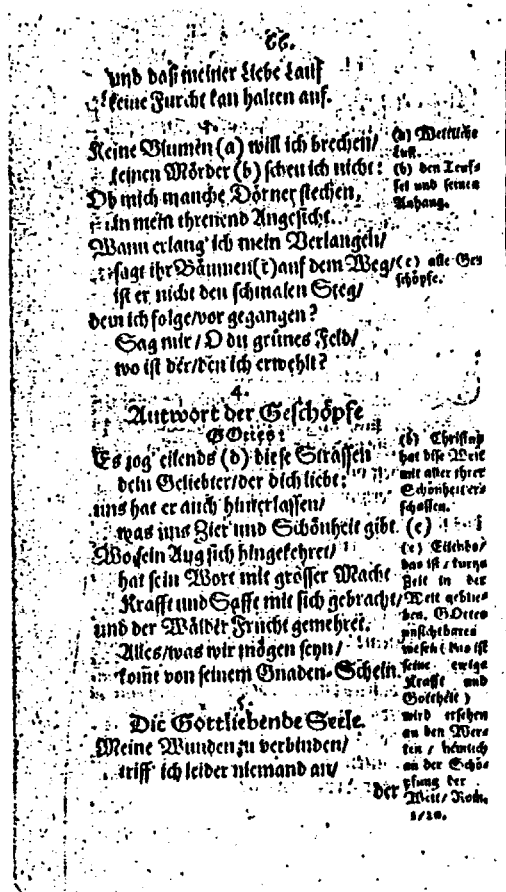 66.
und daß meiner Liebe Lauf
keine Furcht kan halten auf.
3.
Keine Blumen (a) will ich brechen/
keinen Mörder (b) scheu ich nicht:
Ob mich manche Dörner stechen,
in mein threnend Angesicht.
Wann erlang' ich mein Verlangen/
sagt ihr Bäumen (c) auf dem Weg/
ist er nicht den schmalen Steg/
dem ich folge/ vor gegangen?
Sag mir/ O du grünes Feld/
wo ist der/ den ich erwehlt?
4.
Antwort der Geschöpfe
GOttes:
Es zog' eilends (d) diese Strassen
dein Geliebter/ der dich liebt:
uns hat er auch hinterlassen/
was uns Zier und Schönheit gibt. (e)
Wo sein Aug sich hingekehret/
hat sein Wort mit grosser Macht
Krafft und Safft mit sich gebracht/
und der Wälder Frucht gemehret.
Alles/ was wir mögen seyn/
kom̃t von seinem Gnaden-Schein.
5.
Die Gottliebende Seele.
Meine Wunden zu verbinden/
triff' ich leider niemand an/
der
(a) Weltliche
Lust.
(b) den Teuf-
fel und seinen
Anhang.
(c) alle Ge-
schöpfe.
(d) Christus
hat dise Welt
mit aller ihrer
Schönheit er-
schaffen.
(e) Eilends/
das ist/ kurtze
Zeit in der
Welt geblie-
ben. GOttes
unsichtbares
wesen (das ist
seine ewige
Krafft und
Gottheit)
wird ersehen
an den Wer-
ken/ nemlich
an der Schö-
pfung der
Welt/ Rom.
1/20.